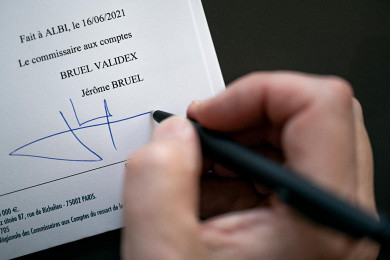 Fait à ALBI, le 16/06/2021
Le commissaire aux comptes
BRUEL VALIDEX
Jérôme BRUEL
000 €.
située 87, rue de Richelieu - 75002 PARIS.
705
Régionale des Commissaires aux Comptes du ressort de la